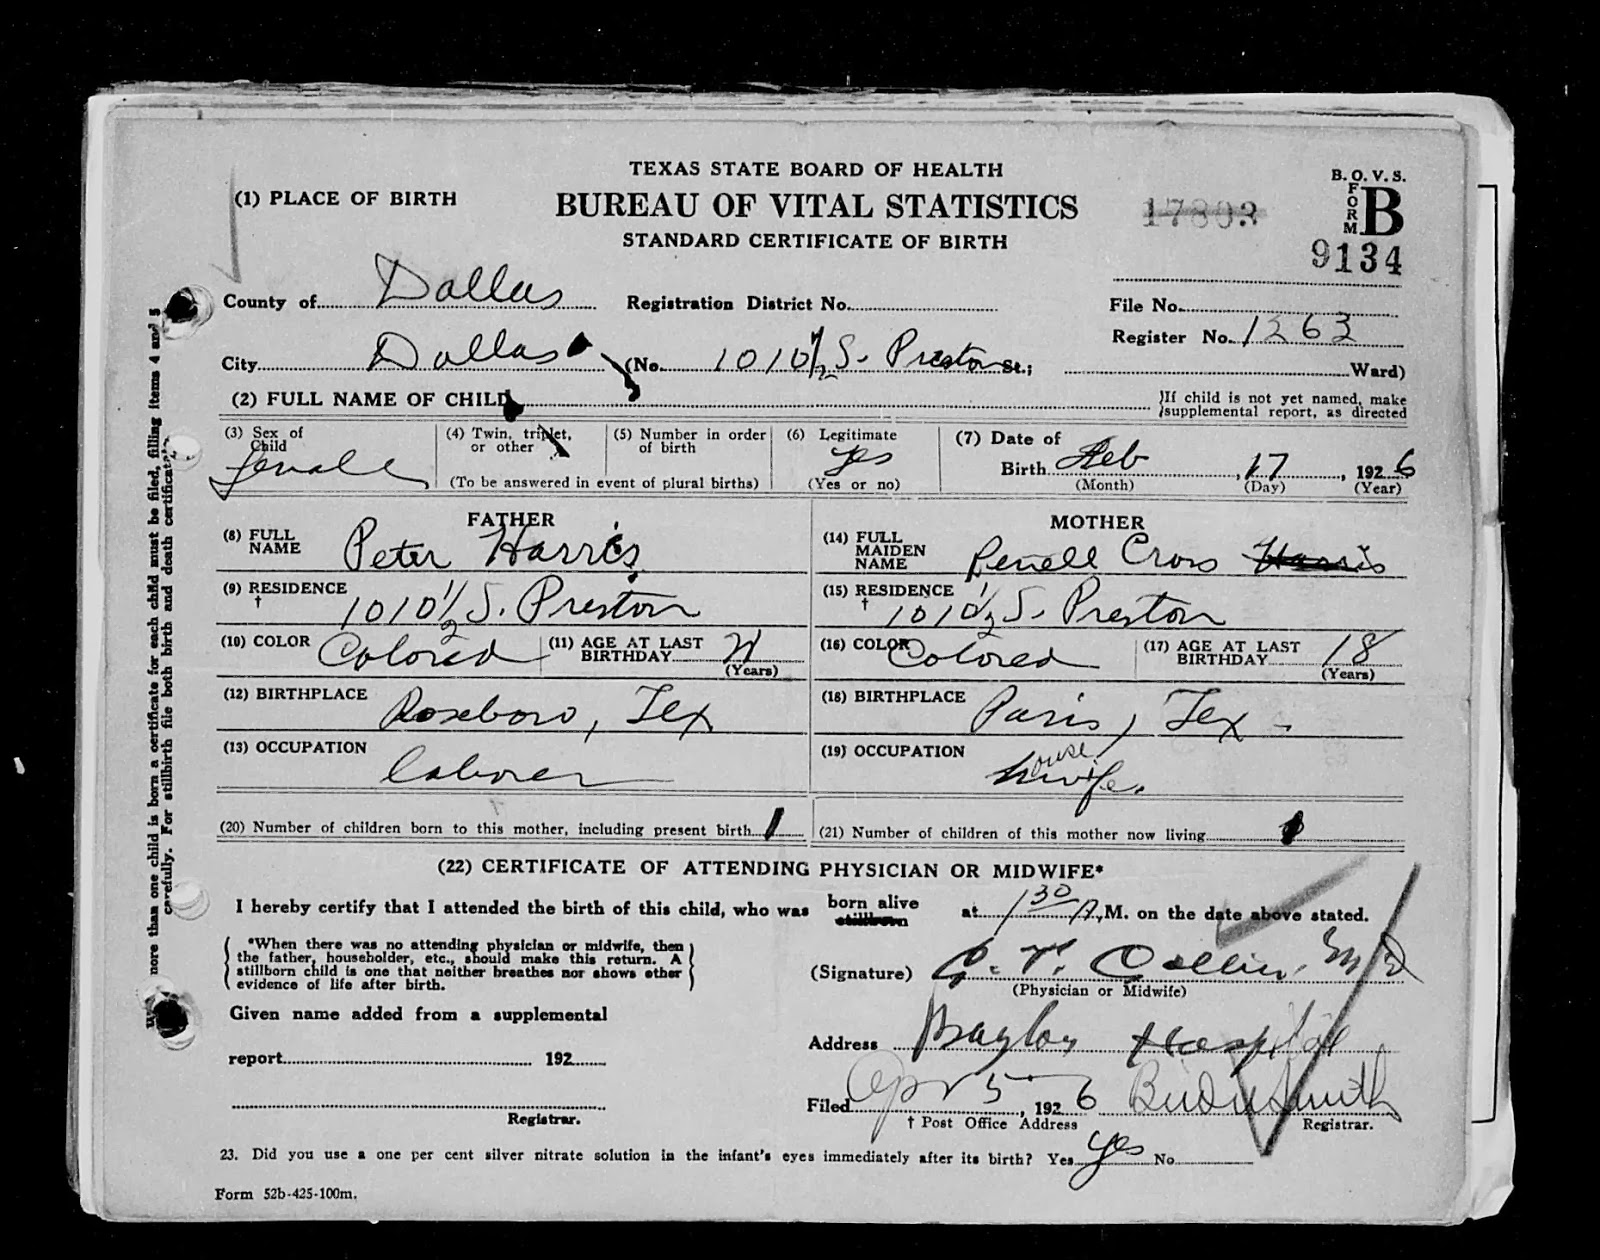 TEXAS STATE BOARD OF HEALTH
B. O. V. S.
(1) PLACE OF BIRTH
BUREAU OF VITAL STATISTICS
17803
FORM B
STANDARD CERTIFICATE OF BIRTH
9134
County of Dallas
Registration District No.
File No.
Register No. 1263
City Dallas (No. 1010 1/2 S. Preston St.; Ward)
(2) FULL NAME OF CHILD
}If child is not yet named, make
}supplemental report, as directed
(3) Sex of Child female
(4) Twin, triplet, or other
(5) Number in order of birth
(To be answered in event of plural births)
(6) Legitimate Yes
(Yes or no)
(7) Date of Birth Feb, 17, 1926
(Month) (Day) (Year)
FATHER
(8) FULL NAME Peter Harris
(9) RESIDENCE † 1010 1/2 S. Preston
(10) COLOR Colored
(11) AGE AT LAST BIRTHDAY (Years)
(12) BIRTHPLACE Roseboro, Tex
(13) OCCUPATION laborer
MOTHER
(14) FULL MAIDEN NAME Cross Harris
(15) RESIDENCE † 1010 1/2 S. Preston
(16) COLOR Colored
(17) AGE AT LAST BIRTHDAY 18 (Years)
(18) BIRTHPLACE Paris, Tex.
(19) OCCUPATION housewife.
(20) Number of children born to this mother, including present birth 1
(21) Number of children of this mother now living
(22) CERTIFICATE OF ATTENDING PHYSICIAN OR MIDWIFE*
I hereby certify that I attended the birth of this child, who was born alive stillborn at 1 30 A. M. on the date above stated.
*When there was no attending physician or midwife, then
the father, householder, etc., should make this return. A
stillborn child is one that neither breathes nor shows other
evidence of life after birth.
(Signature) M D
(Physician or Midwife)
Given name added from a supplemental
report 192
Registrar.
Address Baylor Hospital
Filed Apr 5, 1926 Smith
† Post Office Address
Registrar.
23. Did you use a one per cent silver nitrate solution in the infant's eyes immediately after its birth? Yes yes No
Form 52b-425-100m.
more than one child is born a certificate for each child must be filed, filling items 4 and 5
carefully. For stillbirth file both birth and death certificates.